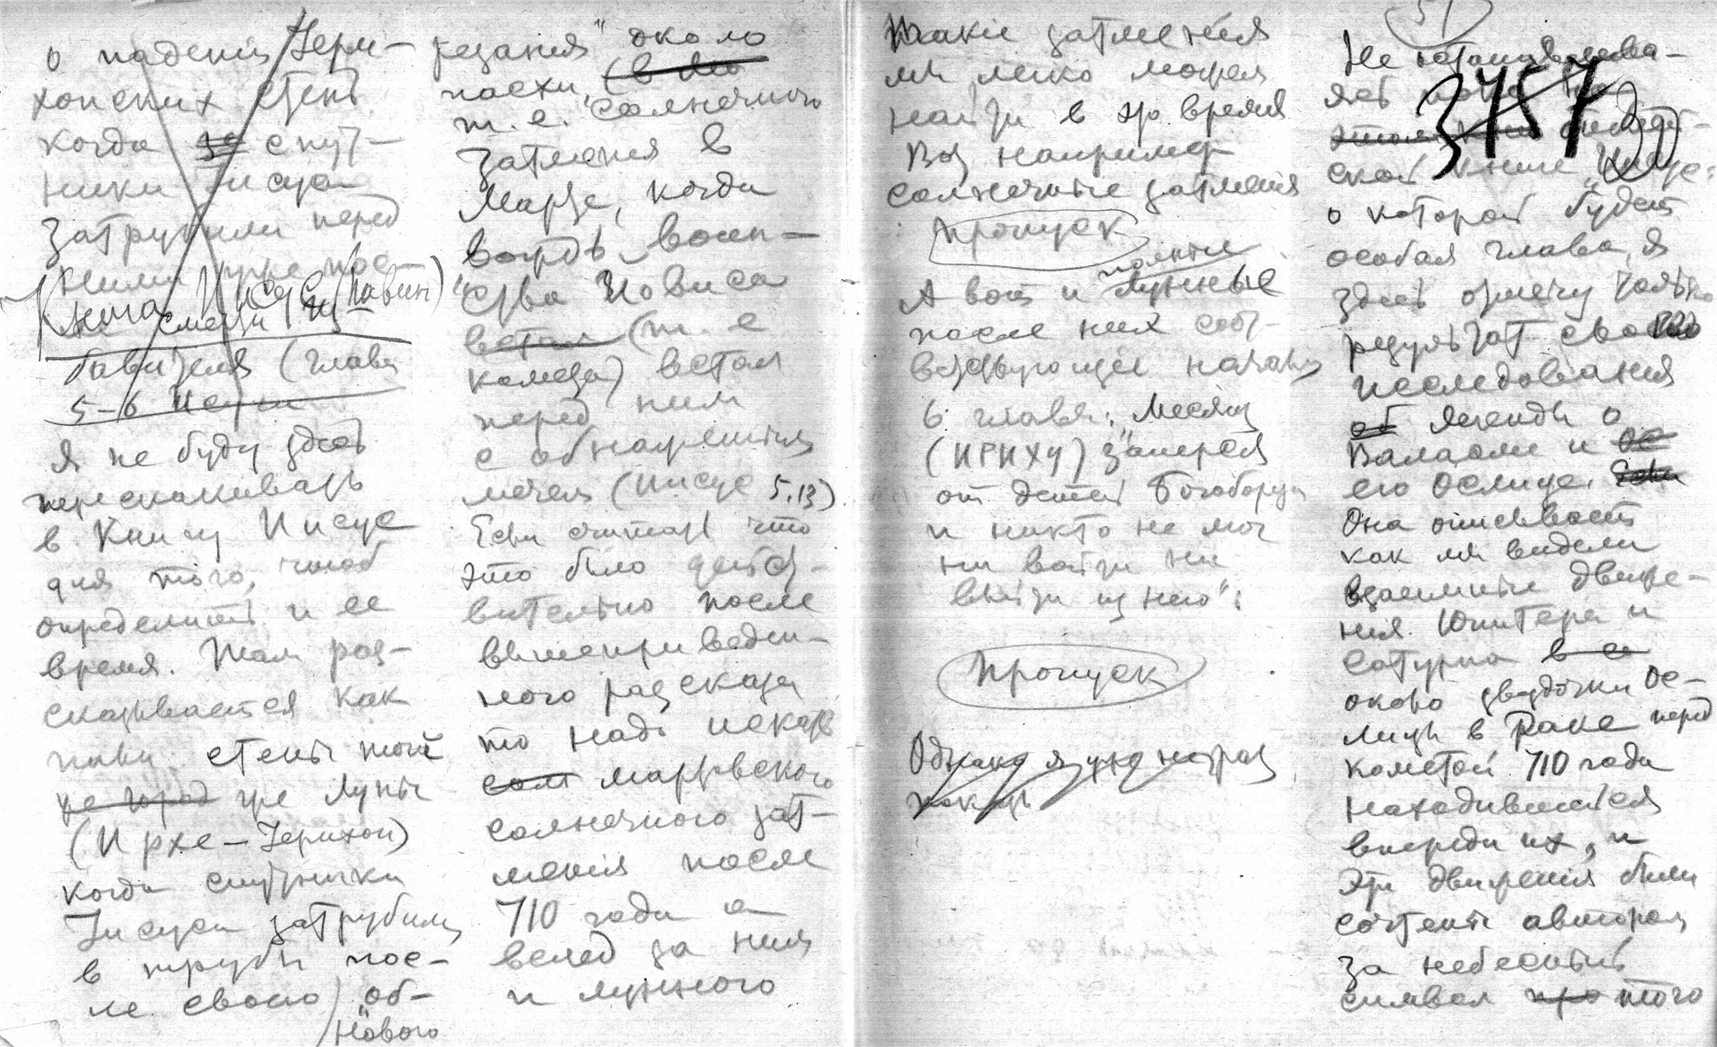 о падении Iери-
хонских стен
когда за спут-
ники Iисуса
затрубили перед
ними
(Книга Иисус Навин)
смерти из-
бавителя (глава
5-6 Исуса
Я не буду здесь
перескакивать
в Книгу Иисус
для того, чтоб
определить и ее
время. Там рас-
сказывается как
пали стены той
же город же Луны
(Ирхе-Iерихон)
когда спутники
Iисуса затрубили
в трубы пос-
ле своего "об-
нового
резания" около
пасхи, (в
т.е. солнечного
затмения в
Марте, когда
вождь воин-
"ства Иовиса
встал (т.е
комета) встал
перед ним
с обнаженным
мечем (Иисус 5,13)
Если считать что
это было дейст-
вительно после
вышеприведен-
ного рассказа
то надо искать
сол мартовского
солнечного зат-
мения после
710 года а
вслед за ним
и лунного
Такие затмения
мы легко можем
найти в это время
Вот например
солнечные затмения
Пропуск
А вот и полные лунные
после них соот-
ветствующие началу
6 главы: "Месяц
(ИРИХУ) заперся
от детей Богоборца
и никто не мог
ни войти ни
выйти из него":
Пропуск
Однако я уже
51
3757
Не останавлива-
ясь
этом
ской книге "Иисус"
о которой будет
особая глава, я
здесь отмечу только
результат своего
исследования
об легенды о
Валааме и ос
его ослице.
Она описывает
как мы видели
взаимные движе-
ния Юпитера и
Сатурна в со
около звездочки Ос-
лицы в Раке перед
кометой 710 года
находившейся
впереди их, и
эти движения были
сочтены автором
за небесный
символ про того